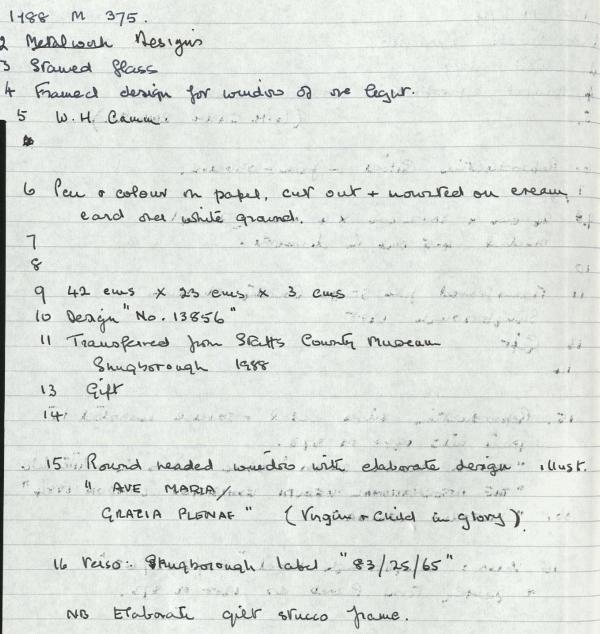 1988 M 375.
2 Metalwork Designs
3 Stained Glass
4 Framed design for window of one light.
5 W.H. Camm
6 Pen + colour on paper, cut out + mounted on cream
card over white ground.
7
8
9 42 cms × 23 cms × 3 cms
10 Design "No. 13856"
11 Transferred from Staffs County Museum
Shugborough 1988
13 Gift
14
15 Round headed window with elaborate design illust.
" AVE MARIA/
GRAZIA PLENAE" (Virgin + Child in Glory)
16 Verso: Shugborough label "83/25/65"
NB Elaborate gilt stucco frame.